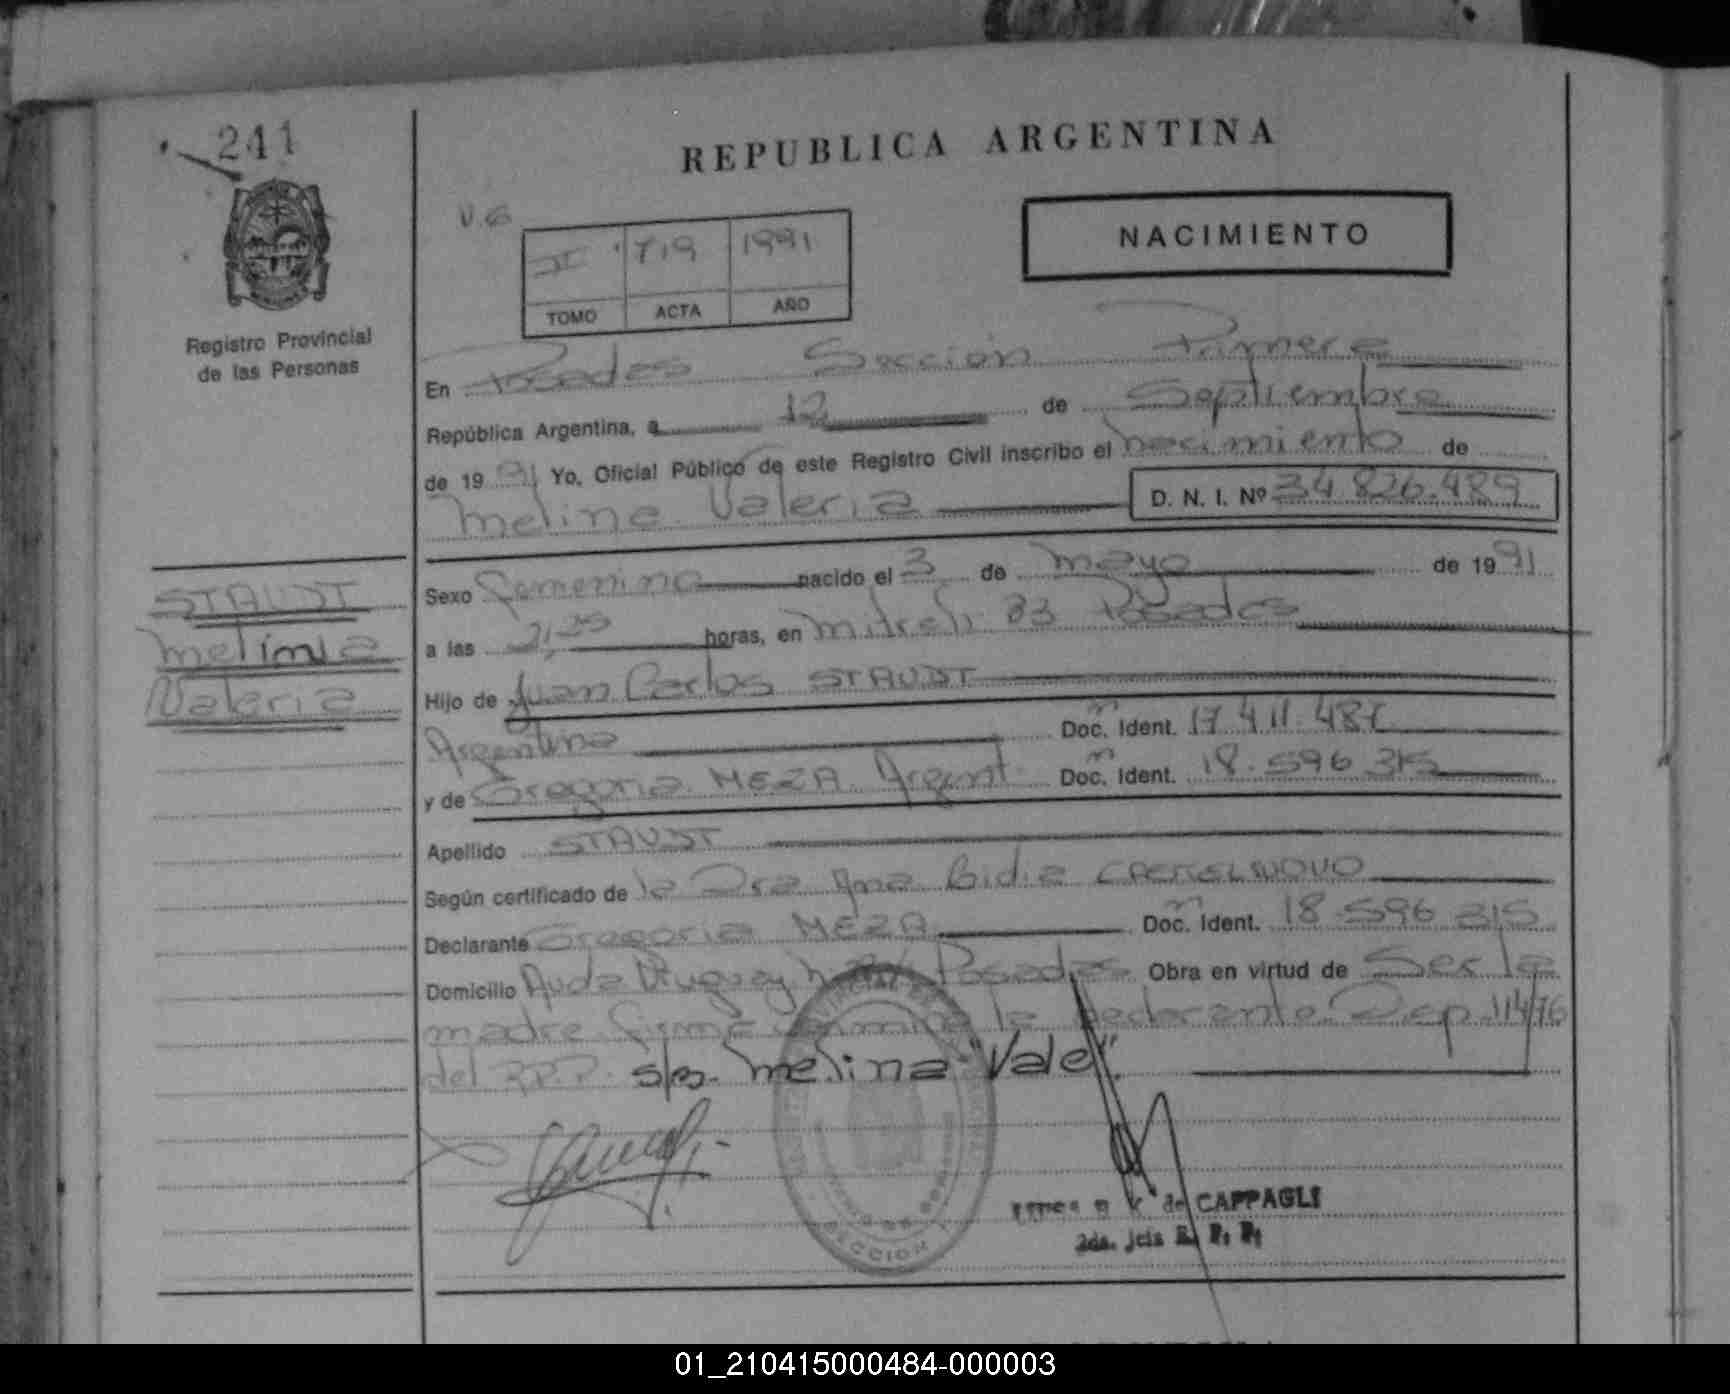 241
REPUBLICA ARGENTINA
NACIMIENTO
V.6
II 719 1991
TOMO ACTA AÑO
Registro Provincial
de las Personas
En Posadas Sección Primera
República Argentina, a 12 de Septiembre
de 1991 Yo, Oficial Público de este Registro Civil inscribo el nacimiento de
Melina Valeria D. N. I. Nº 34.826.489
STAUDT
Melinia
Valeria
Sexo femenino nacido el 3 de mayo de 1991
a las 21,25 horas, en Mitre 83 Posadas
Hijo de Juan Carlos STAUDT
Argentino Doc. Ident. 17.411.487
y de Gregoria MEZA Argent. Doc. Ident. 18.596.315
Apellido STAUDT
Según certificado de la Dra Ana Lidia CASTELNOVO
Declarante Gregoria MEZA Doc. Ident. 18.596.315
Domicilio Avda Uruguay Posadas Obra en virtud de Ser la
madre firma conmigo la declarante Dep. 11476
del R.P.P. s/r. Melina "Vale".
SECCION
de CAPPAGLI
2da. Jefa R. P. P.
01_210415000484-000003